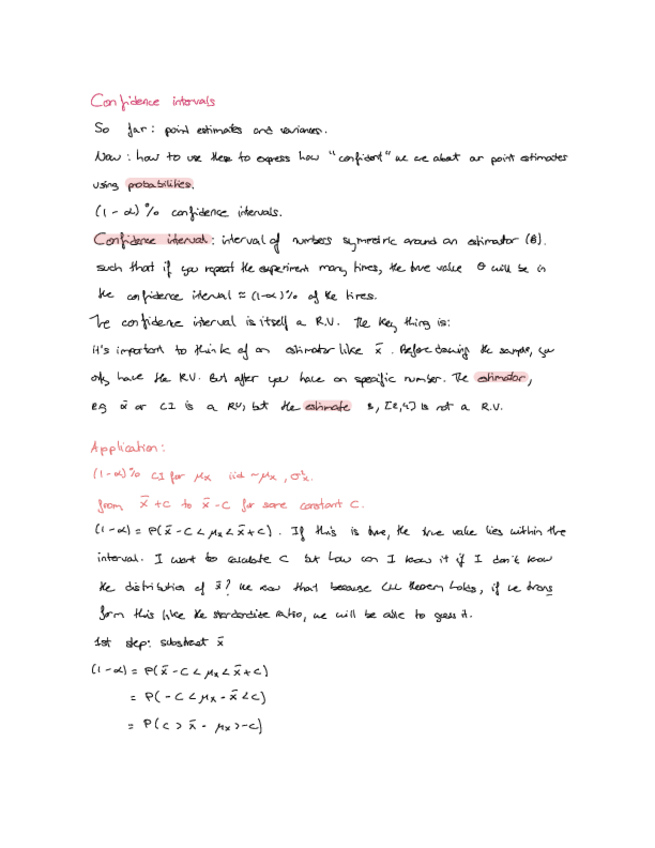 Confidence intervals
So far: point estimates and variances.
Now: how to use these to express how "confident" we are about our point estimates
using probabilities.
(1-α)% confidence intervals.
Confidence interval: interval of numbers symmetric around an estimator (θ).
such that if you repeat the experiment many times, the true value θ will be in
the confidence interval ≈ (1-α)% of the times.
The confidence interval is itself a R.V. The key thing is:
it's important to think of an estimator like x̄. Before drawing the sample, you
only have the RV. But after you have an specific number. The estimator,
eg x̄ or CI is a RV, but the estimate is not a R.V.
Application:
(1-α)% CI for μx iid ~ μx, σ²x.
from x̄ + c to x̄ - c for some constant c.
(1-α) = P(x̄ - c < μx < x̄ + c). If this is true, the true value lies within the
interval. I want to calculate c but how can I know it if I don't know
the distribution of x̄? We know that because CLL theorem holds, if we trans
form this like the standardize ratio, we will be able to guess it.
1st step: substract x̄
(1-α) = P(x̄ - c < μx < x̄ + c)
= P(-c < μx - x̄ < c)
= P(c > x̄ - μx > -c)